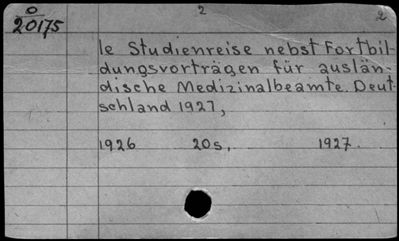 O 2 2
20175
le Studienreise nebst Fortbil-
dungsvorträgen für auslän-
dische Medizinalbeamte. Deut-
schland 1927,
1926 20s, 1927.